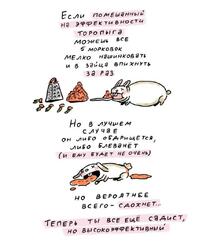 Если помешанный
на эффективности
торопыга
можешь все
5 морковок
мелко нашинковать
и в зайца впихнуть
за раз
Но в лучшем
случае
он либо обдрищется,
либо блеванет
(и ему будет не очень)
но вероятнее
всего - сдохнет...
Теперь ты все ещё садист,
но высокоэффективный